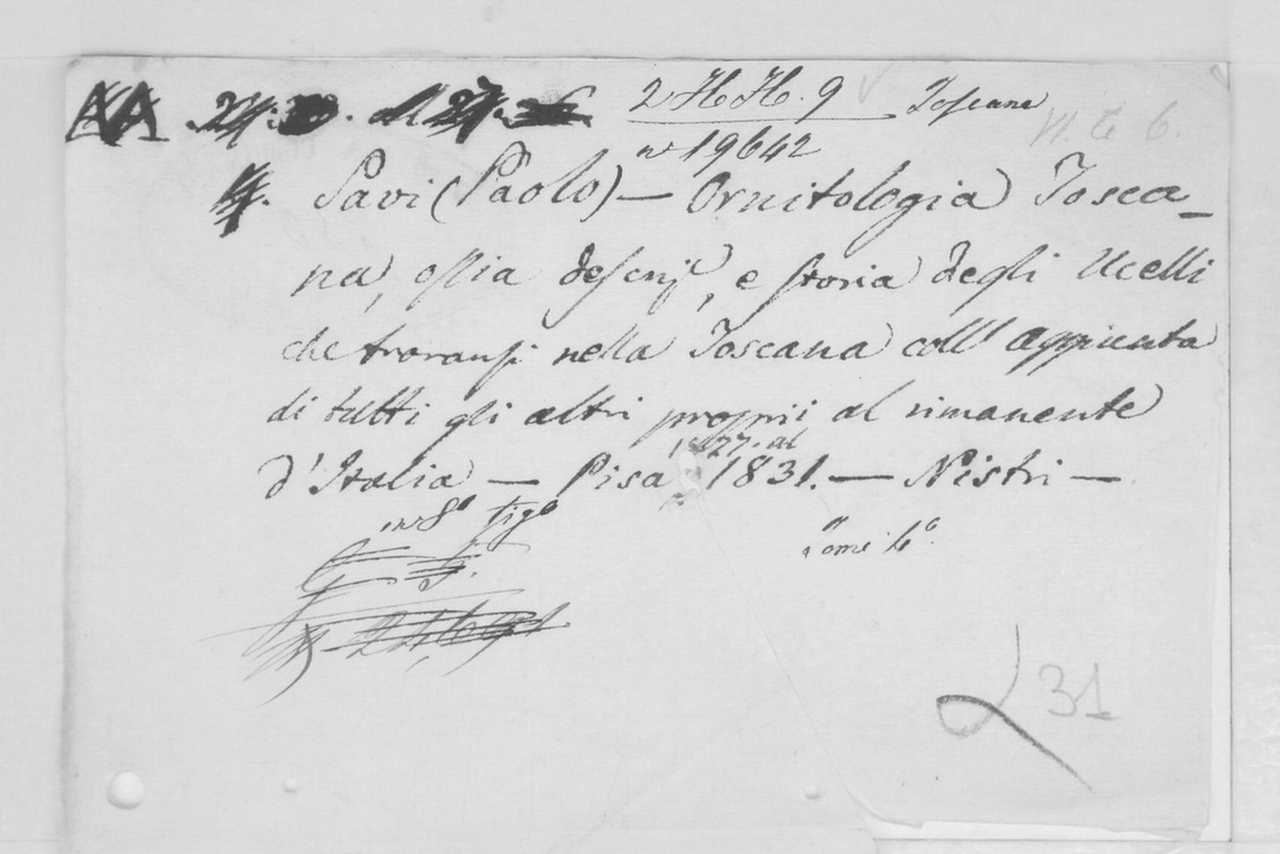 2 H.H. 9 Toscana
nº 19642
4. Savi (Paolo) — Ornitologia Tosca-
na, ossia descriz, e storia degli Ucelli
che trovansi nella Toscana coll' aggiunta
di tutti gli altri proprii al rimanente
1827. al
d'Italia — Pisa 1831. — Nistri —
in 8º figº
Tomi
31